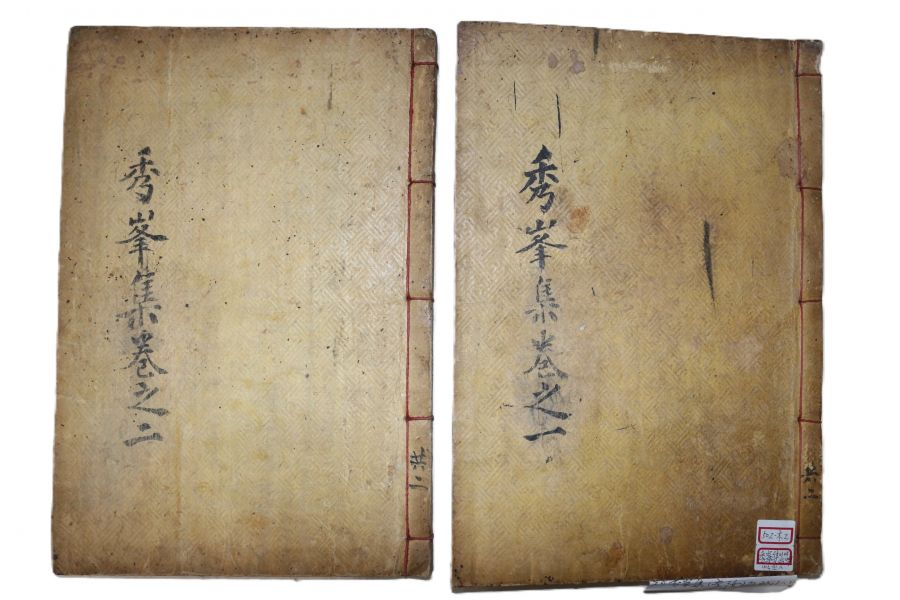 秀峯集卷之二
共二
秀峯集卷之一
共二